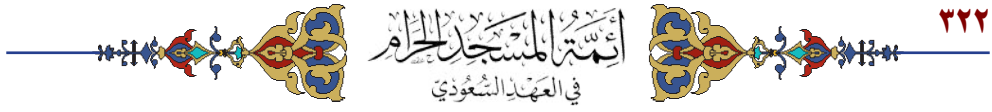 ٣٢٢
أَئِمَّةُ المَسْجِدِ الحَرَامِ
فِي العَهْدِ السُّعُودِيّ